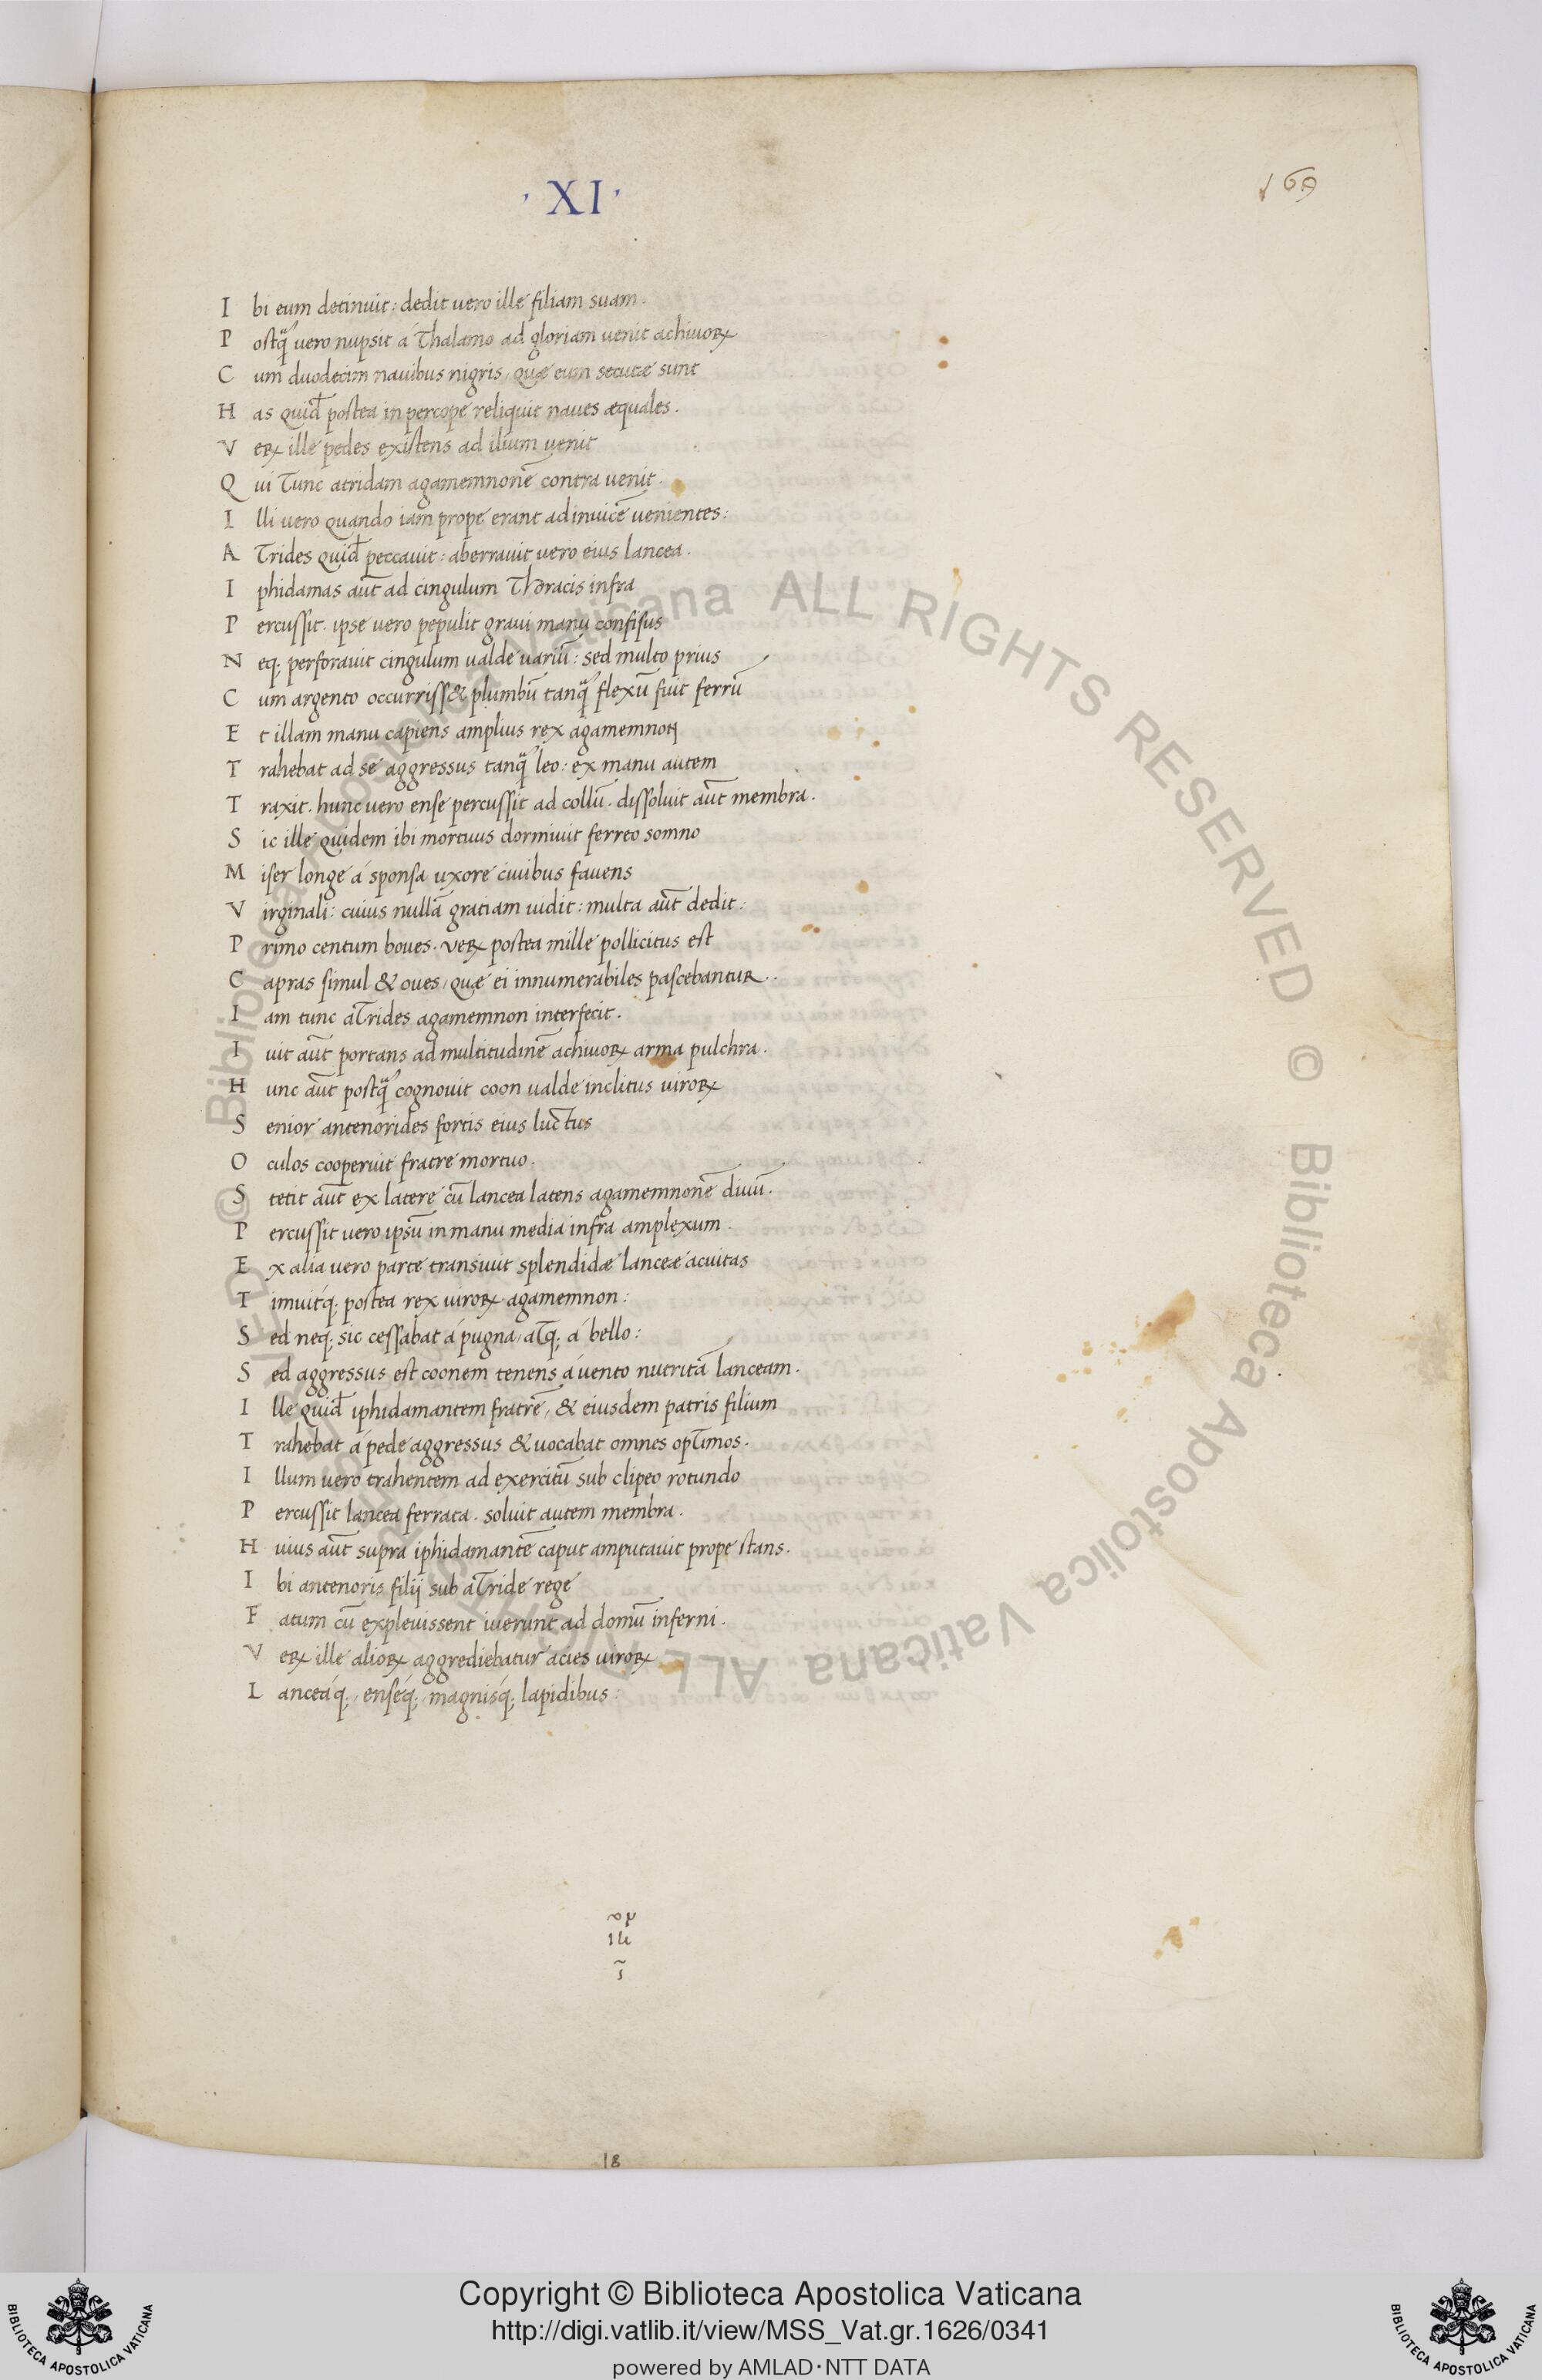 · XI ·
169
I bi eum detinuit: dedit uero ille filiam suam.
P ostq̃ uero nupsit a Thalamo ad gloriam uenit achiuoꝝ
C um duodecim nauibus nigris, quæ eum secutæ sunt
H as quid̃ postea in percope reliquit naues æquales.
V eꝝ ille pedes existens ad ilium uenit
Q ui Tunc atridam agamemnonẽ contra uenit.
I lli uero quando iam prope erant adinuicẽ uenientes:
A Trides quid̃ peccauit: aberrauit uero eius lancea.
I phidamas aut̃ ad cingulum Thoracis infra
P ercussit. ipse uero pepulit graui manu confisus
N eq; perforauit cingulum ualde uariũ: sed multo prius
C um argento occurriss& plumbũ tanq̃ flexũ fuit ferrũ
E t illam manu capiens amplius rex agamemnon
T rahebat ad se aggressus tanq̃ leo: ex manu autem
T raxit. hunc uero ense percussit ad collũ. dissoluit aut̃ membra.
S ic ille quidem ibi mortuus dormiuit ferreo somno
M iser longe á sponsa uxore ciuibus fauens
V irginali: cuius nullã gratiam uidit: multa aut̃ dedit:
P rimo centum boues. veꝝ postea mille pollicitus est
C apras simul & oues, quæ ei innumerabiles pascebantur.
I am tunc aTrides agamemnon interfecit.
I uit aut̃ portans ad multitudinẽ achiuoꝝ arma pulchra.
H unc aut̃ postq̃ cognouit coon ualde inclitus uiroꝝ
S enior antenorides fortis eius luctus
O culos cooperuit fratre mortuo.
S tetit aut̃ ex latere cũ lancea latens agamemnonẽ diuũ.
P ercussit uero ipsũ in manu media infra amplexum.
E x alia uero parte transiuit splendidæ lanceæ acuitas
T imuitq́; postea rex uiroꝝ agamemnon:
S ed neq; sic cessabat á pugna, aTq; á bello:
S ed aggressus est coonem tenens á uento nutritã lanceam.
I lle quid̃ iphidamantem fratrẽ, & eiusdem patris filium
T rahebat á pede aggressus & uocabat omnes opTimos.
I llum uero trahentem ad exercitũ sub clipeo rotundo
P ercussit lancea ferrata. soluit autem membra.
H uius aut̃ supra iphidamantẽ caput amputauit prope stans.
I bi antenoris filij sub aTride rege
F atum cũ expleuissent iuerunt ad domũ inferni.
V eꝝ ille alioꝝ aggrediebatur acies uiroꝝ
L anceáq;, enséq;, magnisq́; lapidibus:
18
Copyright © Biblioteca Apostolica Vaticana
http://digi.vatlib.it/view/MSS_Vat.gr.1626/0341
powered by AMLAD·NTT DATA
BIBLIOTECA APOSTOLICA VATICANA
BIBLIOTECA APOSTOLICA VATICANA